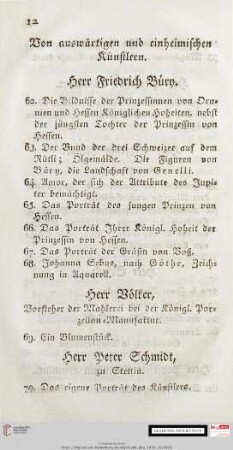 12
Von auswärtigen und einheimischen
Künstlern.
Herr Friedrich Bűry.
62. Die Bildnisse der Prinzessinnen von Ora-
nien und Hessen Königlichen Hoheiten, nebst
der jüngsten Tochter der Prinzessin von
Hessen.
63. Der Bund der drei Schweizer auf dem
Rütli; Ölgemälde. Die Figuren von
Bűry, die Landschaft von Genelli.
64. Amor, der sich der Attribute des Jupi-
ter bemächtigt.
65. Das Porträt des jungen Prinzen von
Hessen.
66. Das Porträt Ihrer Königl. Hoheit der
Prinzessin von Hessen.
67. Das Porträt der Gräfin von Voß.
68. Johanna Sebus, nach Göthe, Zeich-
nung in Aquarell.
Herr Völker,
Vorsteher der Mahlerei bei der Königl. Por-
zellan-Manufaktur.
69. Ein Blumenstück.
Herr Peter Schmidt,
zu Stettin.
70. Das eigene Porträt des Künstlers.